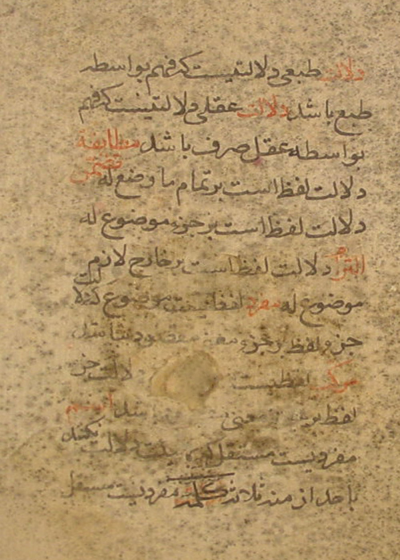 دلالت طبعی دلالتیست که فهم بواسطه
طبع باشد دلالت عقلی دلالتیست که فهم
بواسطه عقل صرف باشد مطابقة
دلالت لفظ است بر تمام ما وضع له تضمن
دلالت لفظ است بر جزء موضوع له
التزام دلالت لفظ است بر خارج لازم
موضوع له مفرد لفظیست موضوع که
جزو لفظ بر جزء معنی مقصود نباشد
مرکب لفظیست دلالت جزء
لفظ بر معنی باشد اسم
مفردیست مستقل که دلالت نکند
باحد از منه ثلاثه کلمه مفردیست مستقل